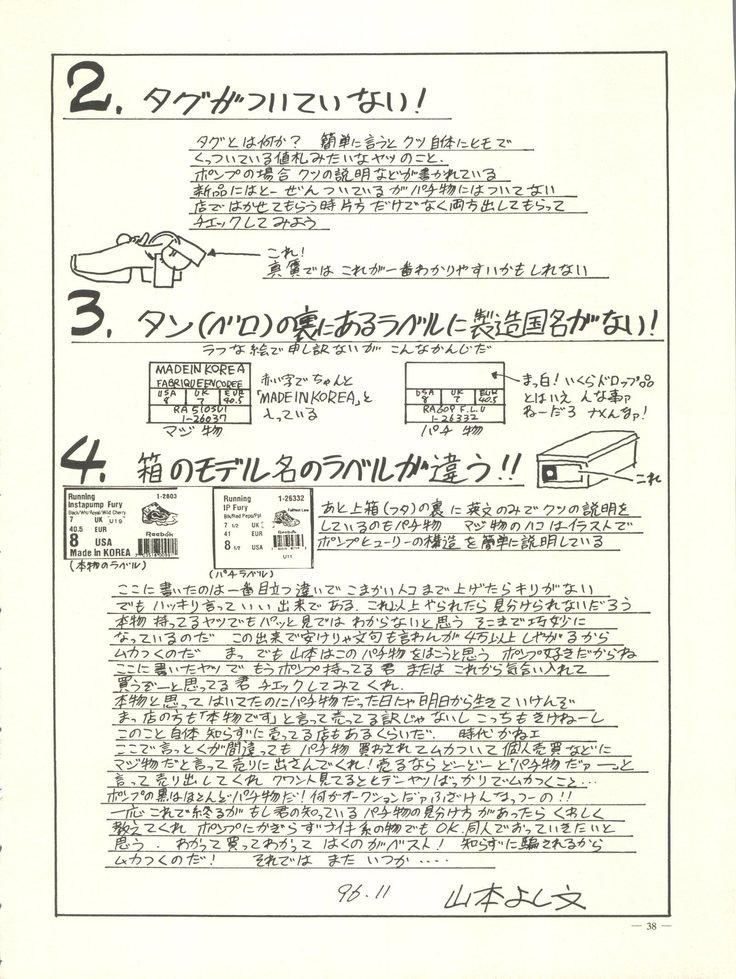 2. タグがついていない!
タグとは何か? 簡単に言うとクツ自体にヒモで
くっついている値札みたいなヤツのこと.
ポンプの場合 クツの説明などが書かれている
新品にはとーぜんついているがパチ物にはついてない
店ではかせてもらう時片方だけでなく両方出してもらって
チェックしてみよう
これ!
真贋では これが一番わかりやすいかもしれない
3. タン(ベロ)の裏にあるラベルに製造国名がない!
ラフな絵で申し訳ないが こんなかんじだ
MADE IN KOREA
FABRIQUE EN COREE
USA 8 UK 7 EUR 40.5
RA 510SUI
1-26037
マジ物
赤い字でちゃんと
「MADE IN KOREA」と
入っている
USA 8 UK 7 EUR 40.5
RA609 F.L.U
1-26332
パチ物
まっ白!いくらドロップ品
とはいえ んな事ァ
ねーだろ ナメんなァ!
4. 箱のモデル名のラベルが違う!!
これ
Running 1-2603
Instapump Fury
Black/Wht/Royal/Wild Cherry
7 UK U19
40.5 EUR
8 USA
Reebok
Made in KOREA
(本物のラベル)
Running 1-26332
IP Fury
Blk/Red Pepo/Ppl
7 1/2 UK
41 EUR
8 1/2 USA
Reebok
U11
(パチラベル)
あと上箱(フタ)の裏に英文のみでクツの説明を
しているのもパチ物 マジ物のハコはイラストで
ポンプヒューリーの構造を簡単に説明している
ここに書いたのは一番目立つ違いでこまかいトコまで上げたらキリがない
でもハッキリ言っていい出来である.これ以上やられたら見分けられないだろう
本物持ってるヤツでもパッと見ではわからないと思う そこまで巧妙に
なっているのだ この出来で安けりゃ文句も言わんが4万以上しやがるから
ムカつくのだ まっでも山本はこのパチ物をはこうと思う ポンプ好きだからね
ここに書いたヤツで もうポンプ持ってる君 または これから気合い入れて
買うぞーと思ってる君 チェックしてみてくれ.
本物と思ってはいてたのにパチ物だった日にゃ明日から生きていけんぞ
まっ店の方も「本物です」と言って売ってる訳じゃないし こっちもきけねーし
このこと自体 知らずに売ってる店もあるくらいだ. 時代かねェ
ここで言っとくが間違っても パチ物 買わされてムカついて個人売買などに
マジ物だと言って売りに出さんでくれ!売るならどーどーと「パチ物だァーっ」と
言って売り出してくれ クワント見てるとヒデーヤツばっかりでムカつくこと…
ポンプの黒はほとんどパチ物だ!何がオークションだァふざけんなっつーの!!
一応これで終るがもし君の知っているパチ物の見分け方があったらくわしく
教えてくれ ポンプにかぎらずナイキ系の物でもOK.同人でおっていきたいと
思う. わかって買ってわかって はくのがベスト! 知らずに騙されるから
ムカつくのだ! それでは また いつか ‥‥
96.11 山本よし文
— 38 —